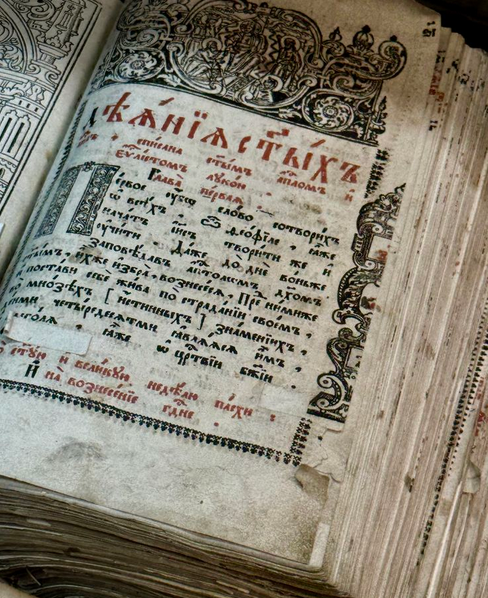 дѣѧ́нїѧ ст҃ы́хъ
списана ст҃ымъ апⷭ҇ломъ и
еѵⷢ҇листомъ лукою .
Глава первая .
Первое убѡ слово сотворихъ
ѡ всѣхъ ѽ ѳеофїле , ꙗже
начатъ іис҃ъ творити же и
учити . Даже до дн҃е воньже
заповѣдавъ апⷭ҇толѡмъ дх҃омъ
ст҃ымъ , ихже избра , вознесесѧ . Пре нимиже
и постави себе жива по страданїи своемъ ,
во мнозѣхъ [ истинныхъ ] знаменїихъ ,
деньми четыредесѧтми ꙗвлѧѧсѧ имъ ,
глаголѧ ꙗже ѡ црⷭ҇твїи бж҃їи .
ст҃ую и великую недѣлю пасхи :
И на вознесенїе гдⷭ҇не .